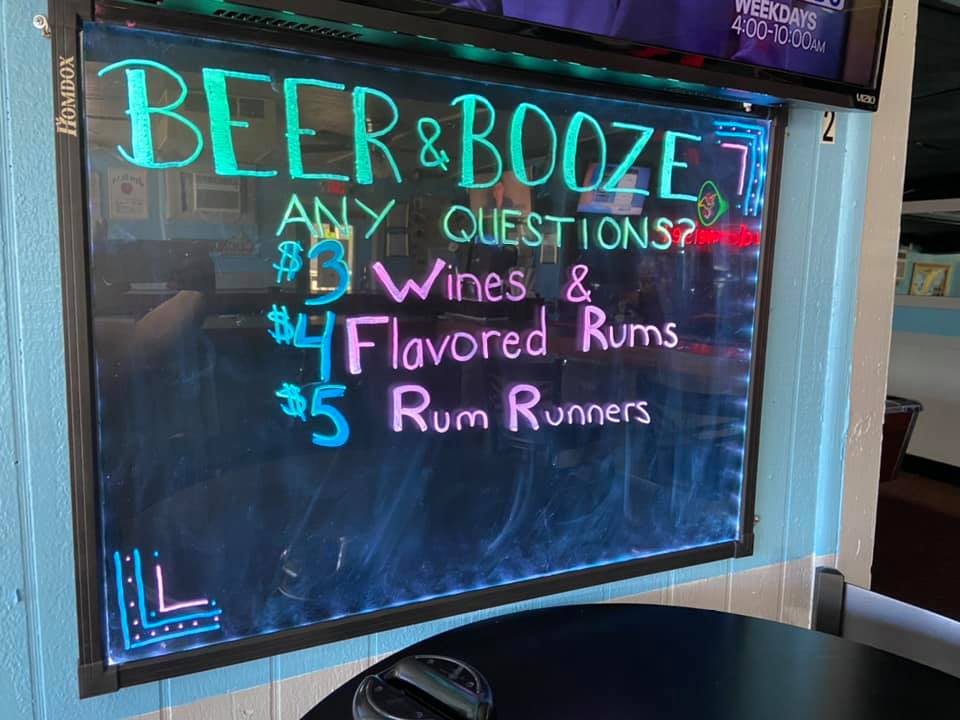 WEEKDAYS
4:00-10:00AM
VIZIO
HOMDOX
2
BEER & BOOZE
ANY QUESTIONS?
$3 Wines &
$4 Flavored Rums
$5 Rum Runners